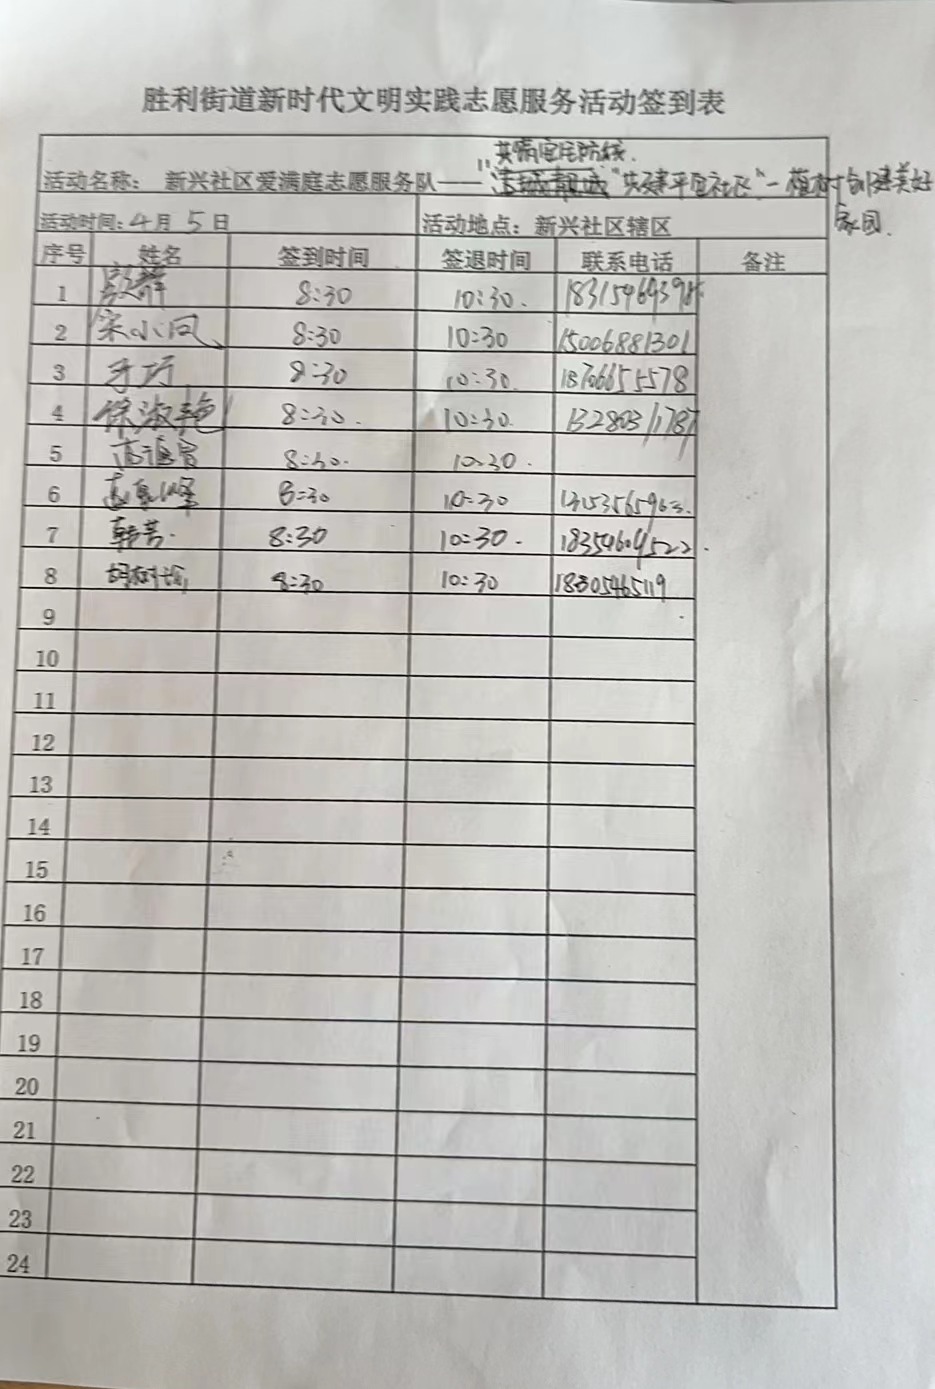 胜利街道新时代文明实践志愿服务活动签到表
共筑安宅防线.
活动名称： 新兴社区爱满庭志愿服务队——“ "共建平安社区"-植树创建美好
家园.
活动时间：4月5日 活动地点：新兴社区辖区
序号 姓名 签到时间 签退时间 联系电话 备注
1 8:30 10:30.
2 宋小凤 8:30 10:30 15006881301
3 8:30 10:30. 18706655578
4 徐淑艳 8:30. 10:30.
5 8:30. 10:30.
6 8:30 10:30
7 韩芳. 8:30 10:30. 18354604522.
8 8:30 10:30 18305465119
9
10
11
12
13
14
15
16
17
18
19
20
21
22
23
24